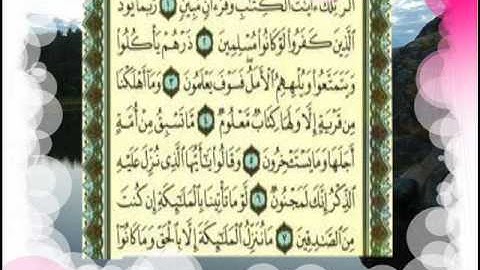 الٓر تِلْكَ ءَايَٰتُ الْكِتَٰبِ وَقُرْءَانٍ مُّبِينٍ ١ رُّبَمَا يَوَدُّ
الَّذِينَ كَفَرُوا لَوْ كَانُوا مُسْلِمِينَ ٢ ذَرْهُمْ يَأْكُلُوا
وَيَتَمَتَّعُوا وَيُلْهِهِمُ الْأَمَلُ فَسَوْفَ يَعْلَمُونَ ٣ وَمَا أَهْلَكْنَا
مِن قَرْيَةٍ إِلَّا وَلَهَا كِتَابٌ مَّعْلُومٌ ٤ مَّا تَسْبِقُ مِنْ أُمَّةٍ
أَجَلَهَا وَمَا يَسْتَـْٔخِرُونَ ٥ وَقَالُوا يَٰٓأَيُّهَا الَّذِي نُزِّلَ عَلَيْهِ
الذِّكْرُ إِنَّكَ لَمَجْنُونٌ ٦ لَّوْ مَا تَأْتِينَا بِالْمَلَٰٓئِكَةِ إِن كُنتَ
مِنَ الصَّٰدِقِينَ ٧ مَا نُنَزِّلُ الْمَلَٰٓئِكَةَ إِلَّا بِالْحَقِّ وَمَا كَانُوا